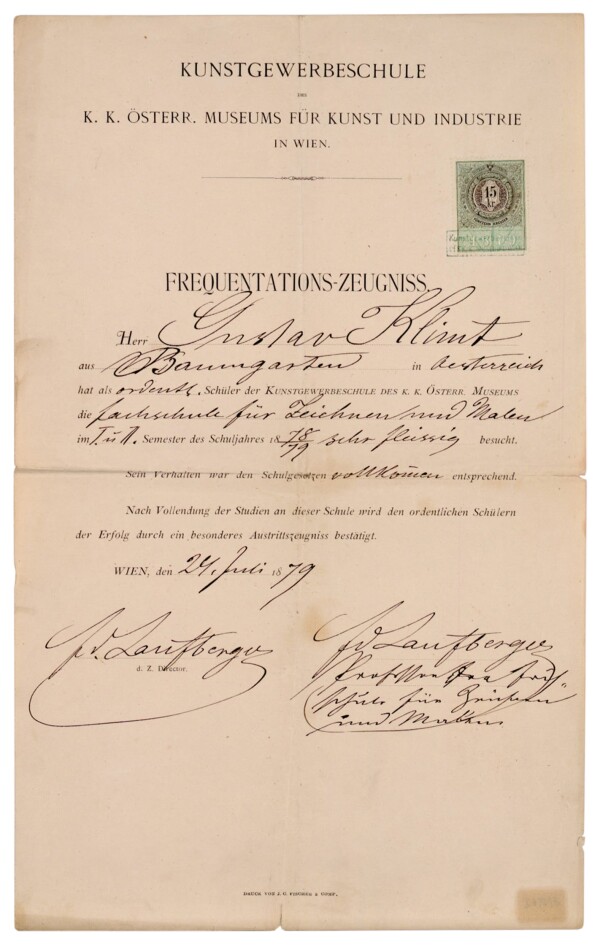 KUNSTGEWERBESCHULE
DES
K. K. ÖSTERR. MUSEUMS FÜR KUNST UND INDUSTRIE
IN WIEN.
15
kr.
FREQUENTATIONS-ZEUGNISS.
Herr Gustav Klimt
aus Baumgarten in Oesterreich
hat als ordentl. Schüler der KUNSTGEWERBESCHULE DES K. K. ÖSTERR. MUSEUMS
die Fachschule für Zeichnen und Malen
im I u II. Semester des Schuljahres 1878/79 sehr fleissig besucht.
Sein Verhalten war den Schulgesetzen vollkom̄en entsprechend.
Nach Vollendung der Studien an dieser Schule wird den ordentlichen Schülern
der Erfolg durch ein besonderes Austrittszeugniss bestätigt.
WIEN, den 24. Juli 1879
Fd. Laufberger
d. Z. Director.
Fd. Laufberger
Professor der Fach-
schule für Zeichnen
und Malen
DRUCK VON J. B. FISCHER & COMP.